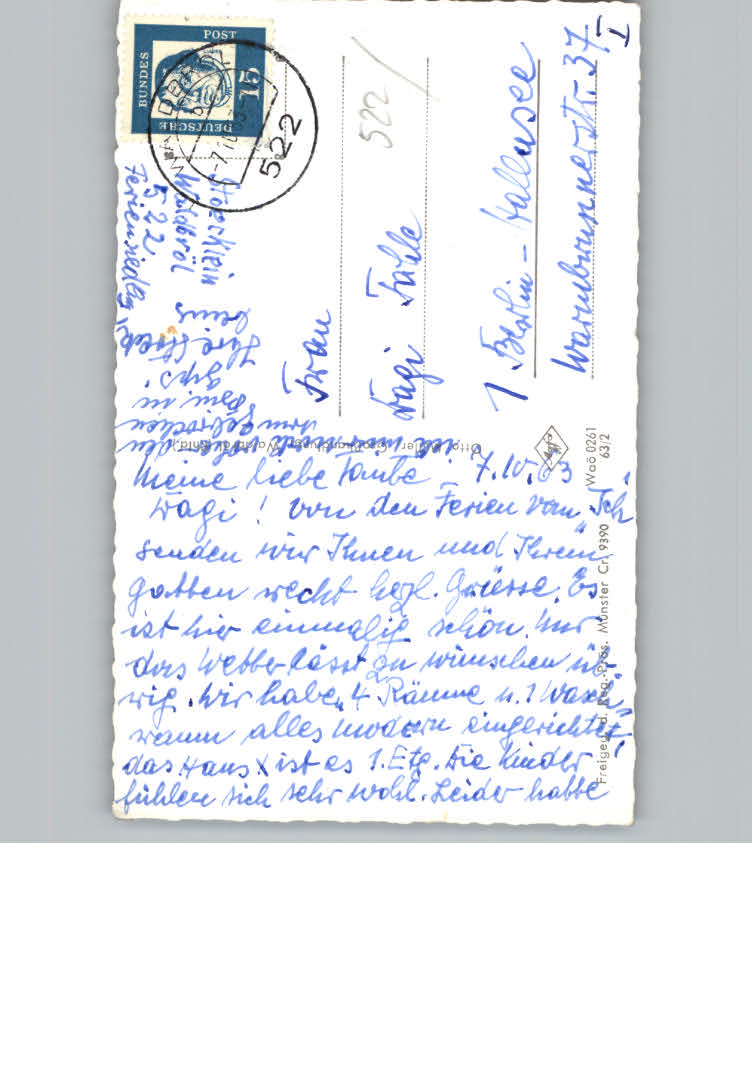 Meine liebe Tante 7.10.63
Wagi! von den Ferien vom „Ich“
senden wir Ihnen und Ihrem
Gatten recht herzl. Grüsse. Es
ist hier einmalig schön. Nur
das Wetter lässt zu wünschen üb-
rig. Wir haben 4 Räume u. 1 Wasch-
raum alles modern eingerichtet
das Haus ist es 1. Etg. Die Kinder
fühlen sich sehr wohl. Leider hatte
vom
Bein in
Gips.
Ihre
Waldbröl
522
Feriensiedlg
Frau
Wagi
1 Berlin-Halensee
Warmbrunnerstr. 37
I
522
DEUTSCHE
BUNDES
POST
15
522
Waö 0261
63/2
Freigeg. d. Reg.-Präs. Münster Cr. 9390